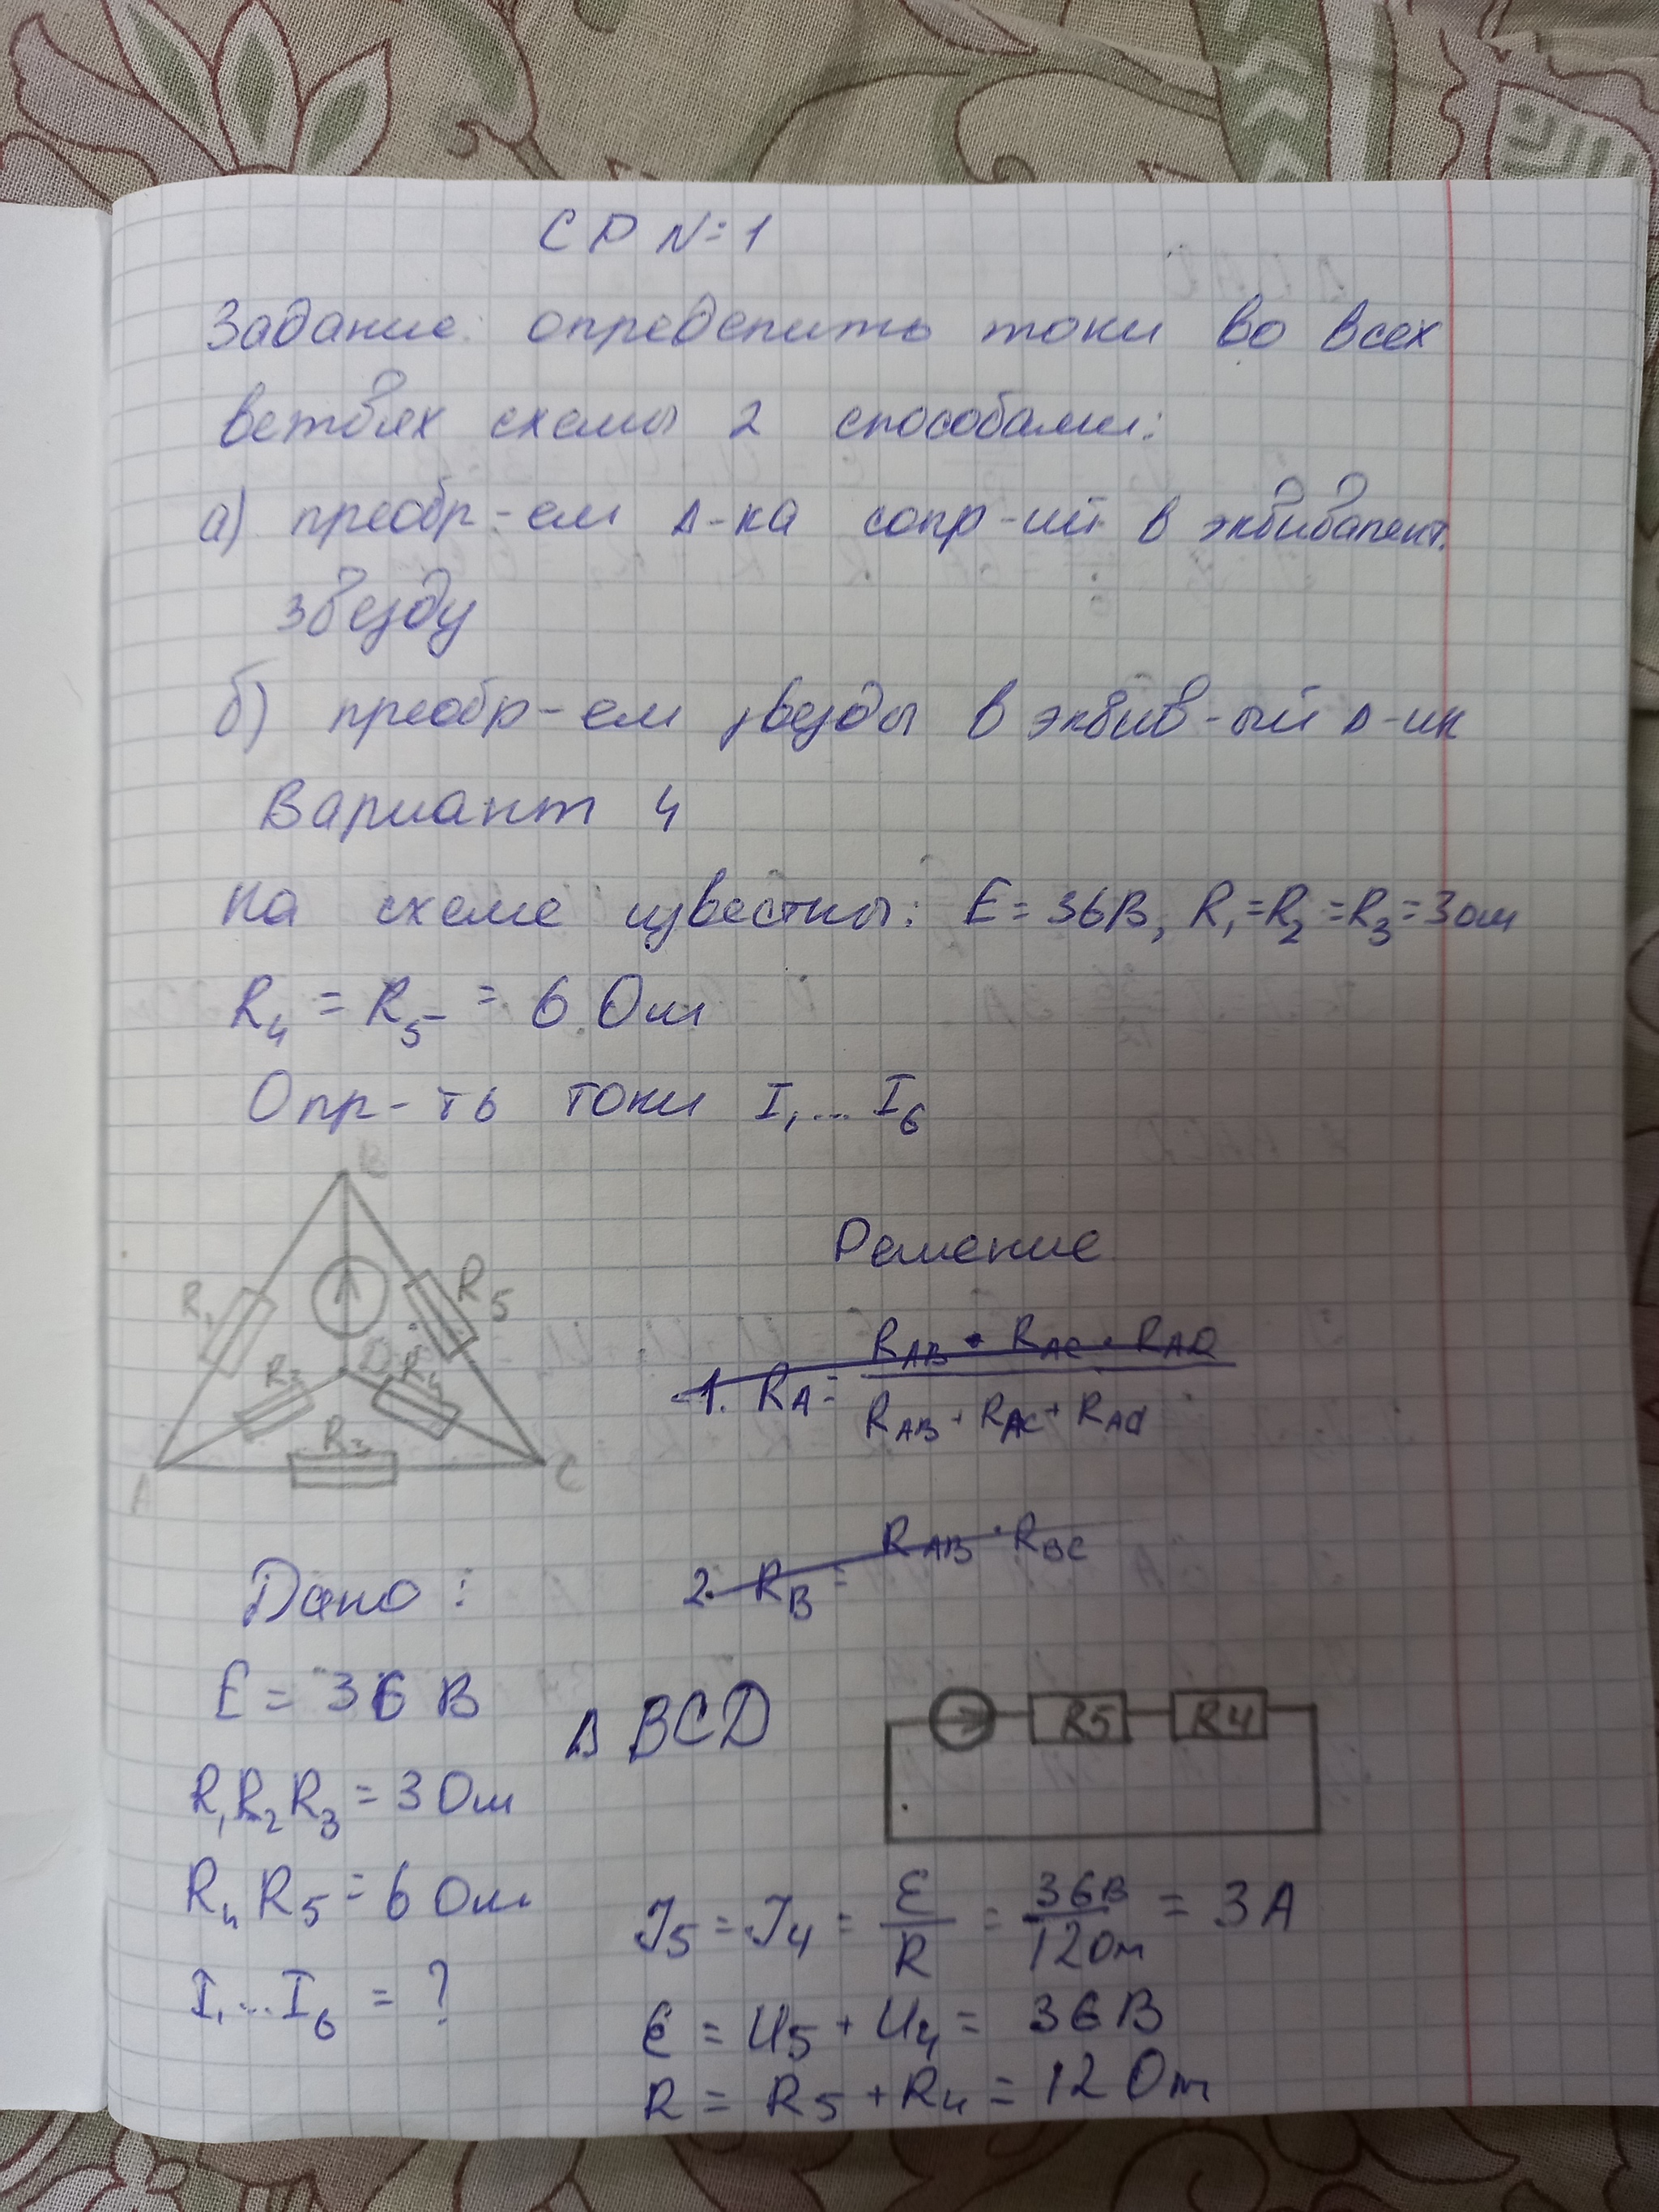 СР №=1
Задание: определить токи во всех
ветвях схемы 2 способами:
а) преобр-ем Δ-ка сопр-ий в эквивалент.
звезду
б) преобр-ем звезды в эквив-ый Δ-ик
Вариант 4
на схеме известны: E = 36В, R₁=R₂=R₃=3ом
R₄ = R₅ = 6 Ом
Опр-ть токи I₁... I₆
B
R₁
R₅
D
R₂
R₄
R₃
A
C
Решение
1. R_A = (R_AB · R_AC · R_AD) / (R_AB + R_AC + R_Ad)
2. R_B = R_AB · R_BC
Дано:
E = 36 В
R₁R₂R₃ = 3 Ом
R₄ R₅ = 6 Ом
I₁...I₆ = ?
Δ BCD
R5
R4
J₅ = J₄ = E/R = 36В/12Ом = 3А
E = U₅ + U₄ = 36В
R = R₅ + R₄ = 12 Ом